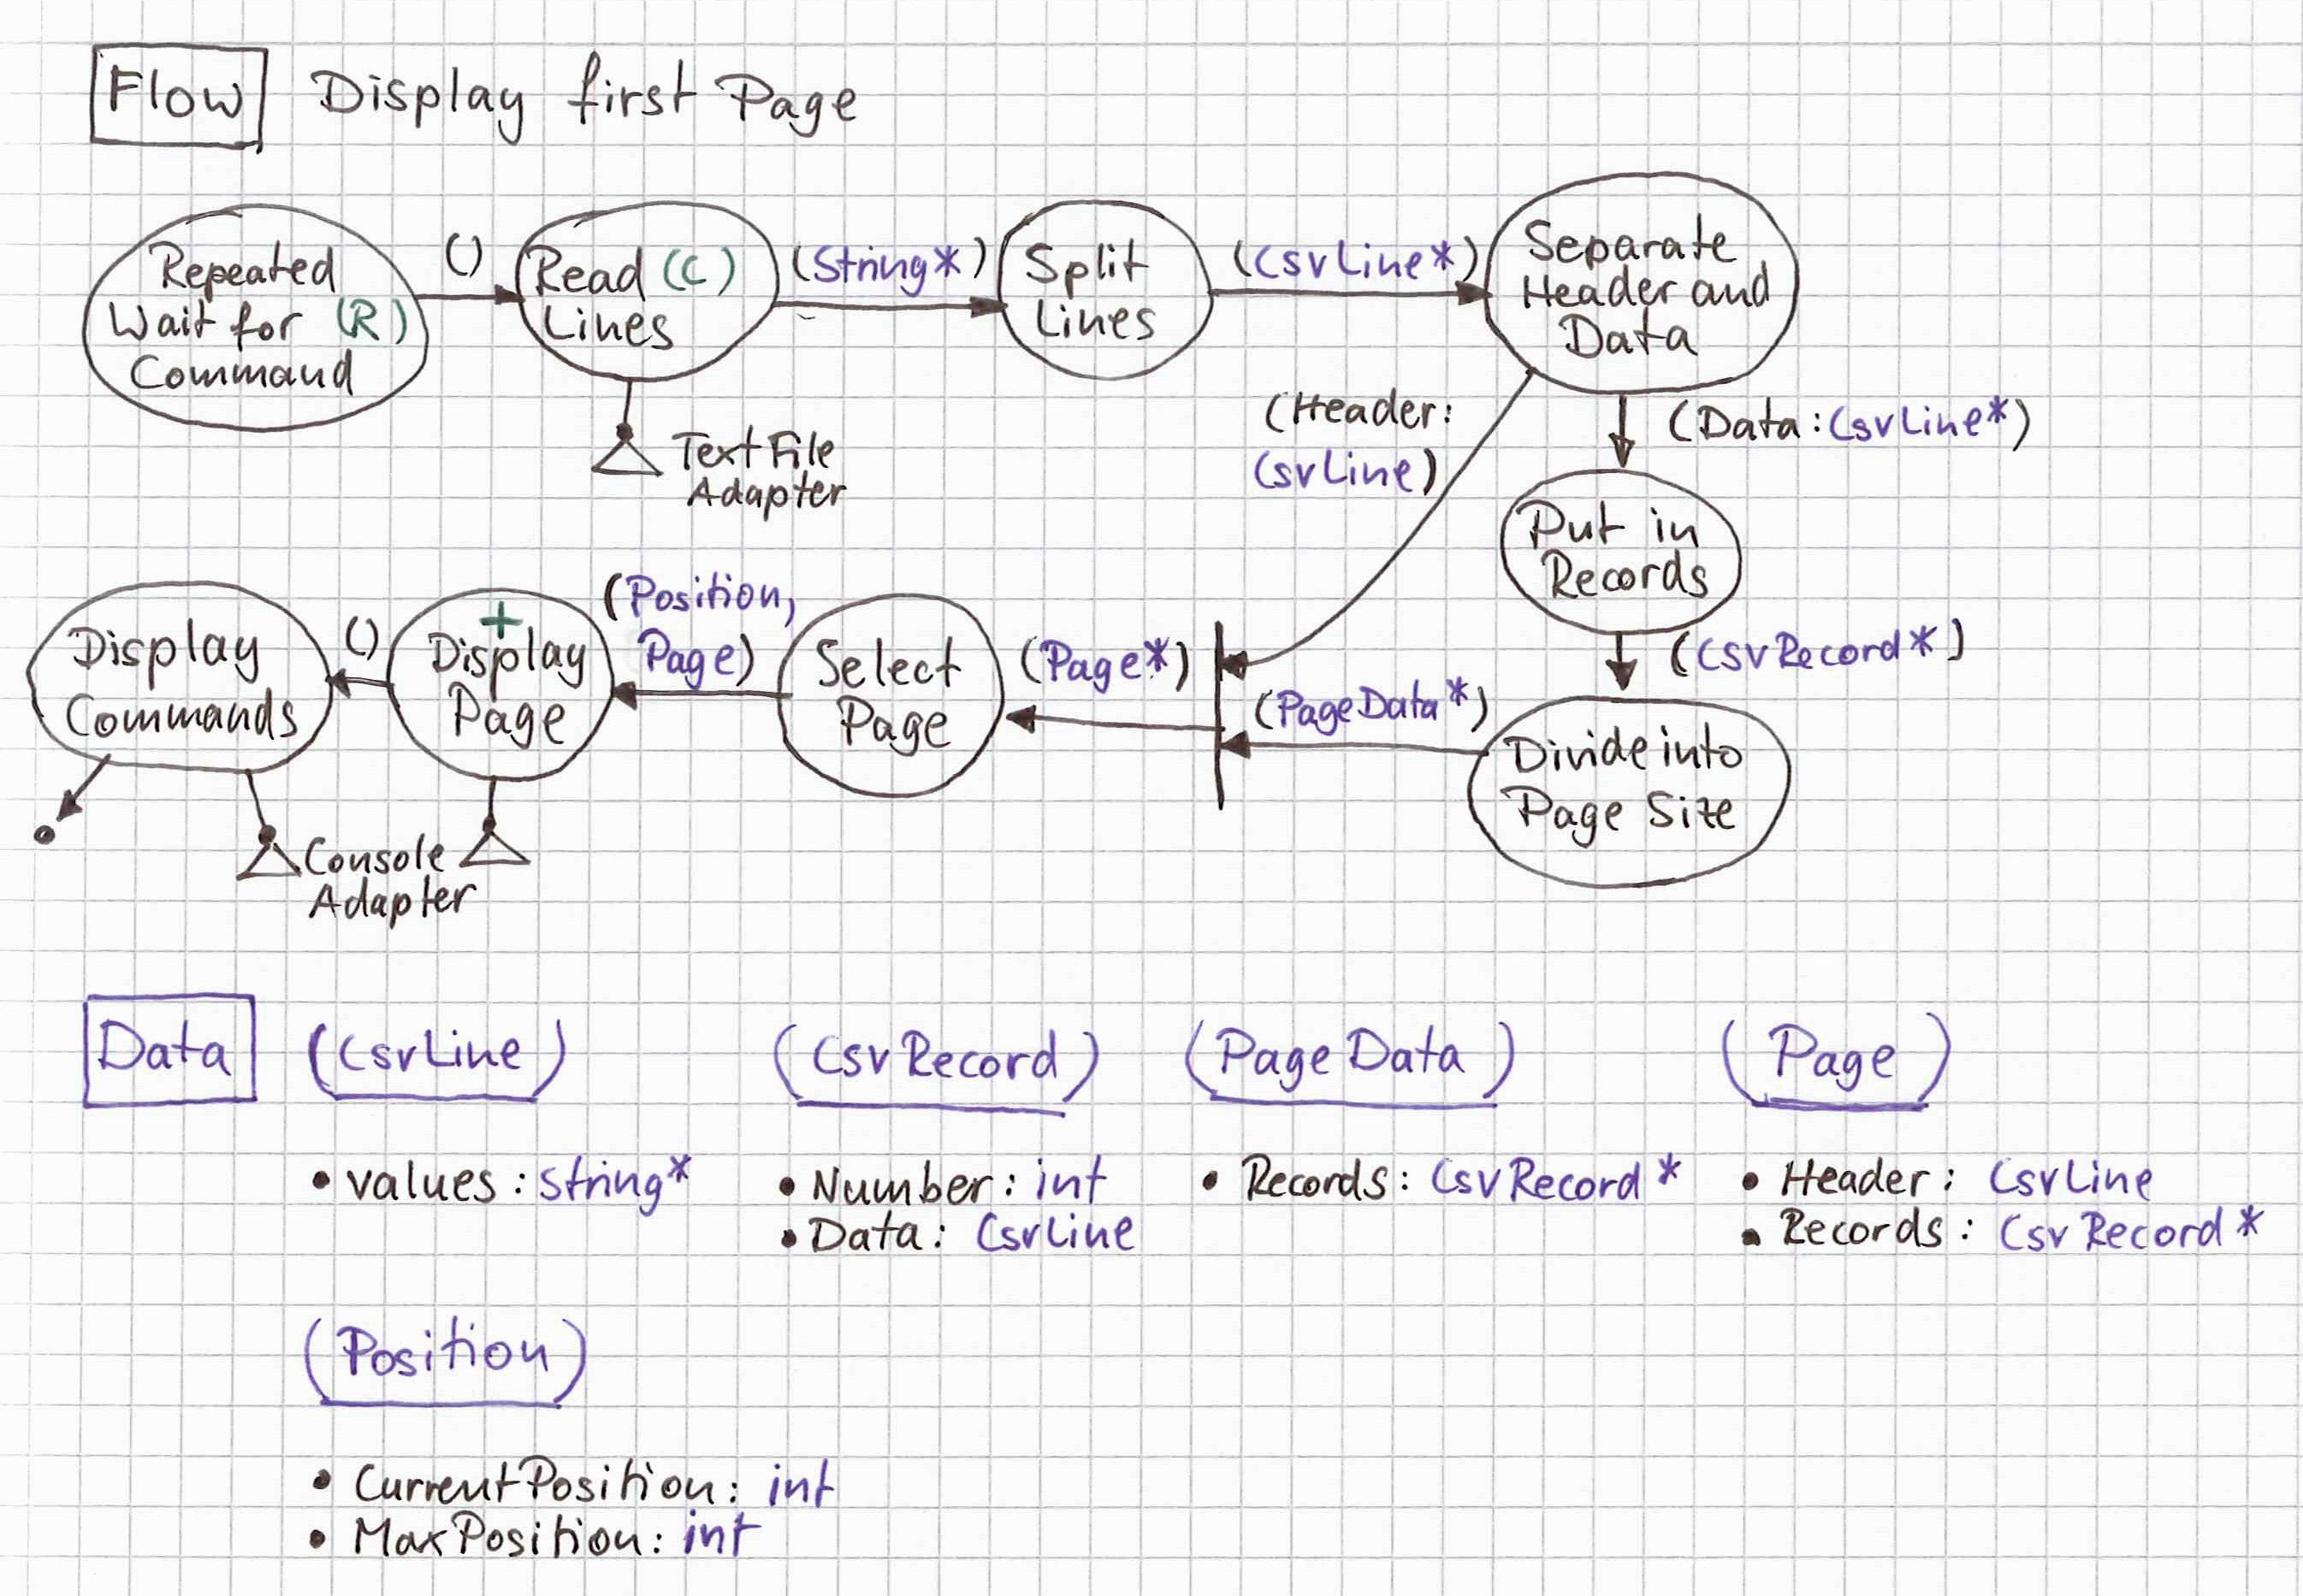 Flow Display first Page
Repeated
Wait for (R)
Command
()
Read (C)
Lines
(String*)
Split
Lines
(CsvLine*)
Separate
Header and
Data
TextFile
Adapter
(Header:
CsvLine)
(Data: CsvLine*)
Put in
Records
(CsvRecord*)
Divide into
Page Size
(PageData*)
(Page*)
Select
Page
(Position,
Page)
+
Display
Page
()
Display
Commands
Console
Adapter
Data
(CsvLine)
• values: string*
(CsvRecord)
• Number: int
• Data: CsvLine
(PageData)
• Records: CsvRecord*
(Page)
• Header: CsvLine
• Records: CsvRecord*
(Position)
• CurrentPosition: int
• MaxPosition: int